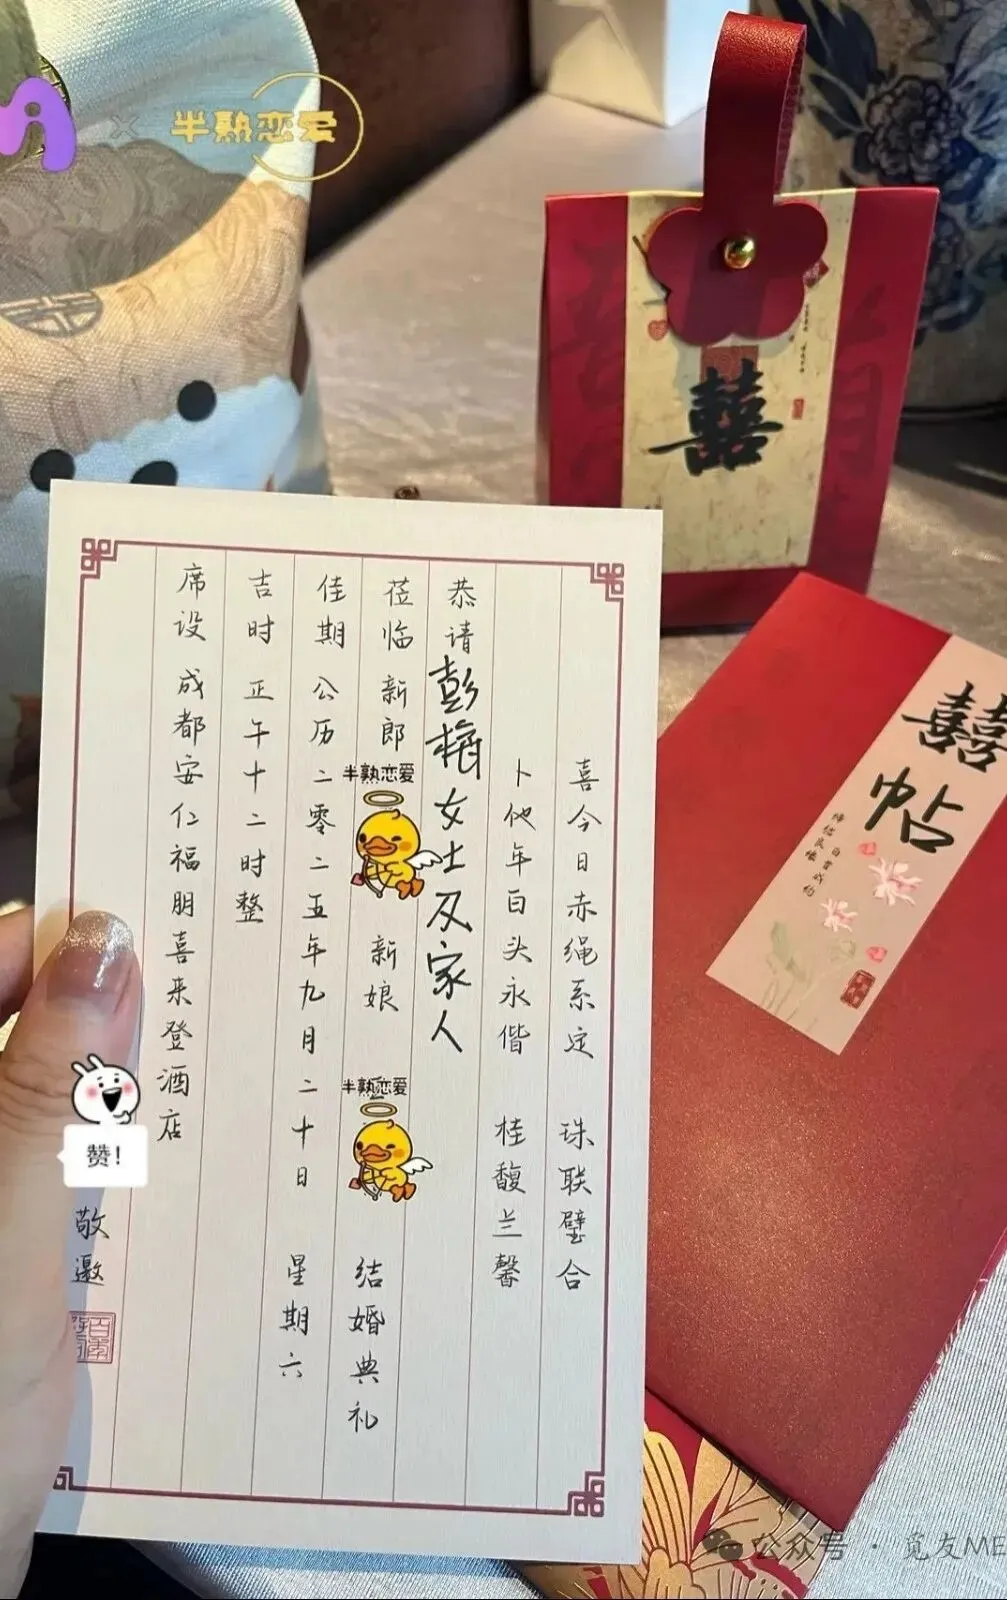 半熟恋爱
喜今日赤绳系定 珠联璧合
卜他年白头永偕 桂馥兰馨
恭请彭梅女士及家人
莅临 新郎 新娘 结婚典礼
半熟恋爱
半熟恋爱
佳期 公历二零二五年九月二十日 星期六
吉时 正午十二时整
席设 成都安仁福朋喜来登酒店
敬邀
赞!
囍
囍帖
公众号·觅友ME